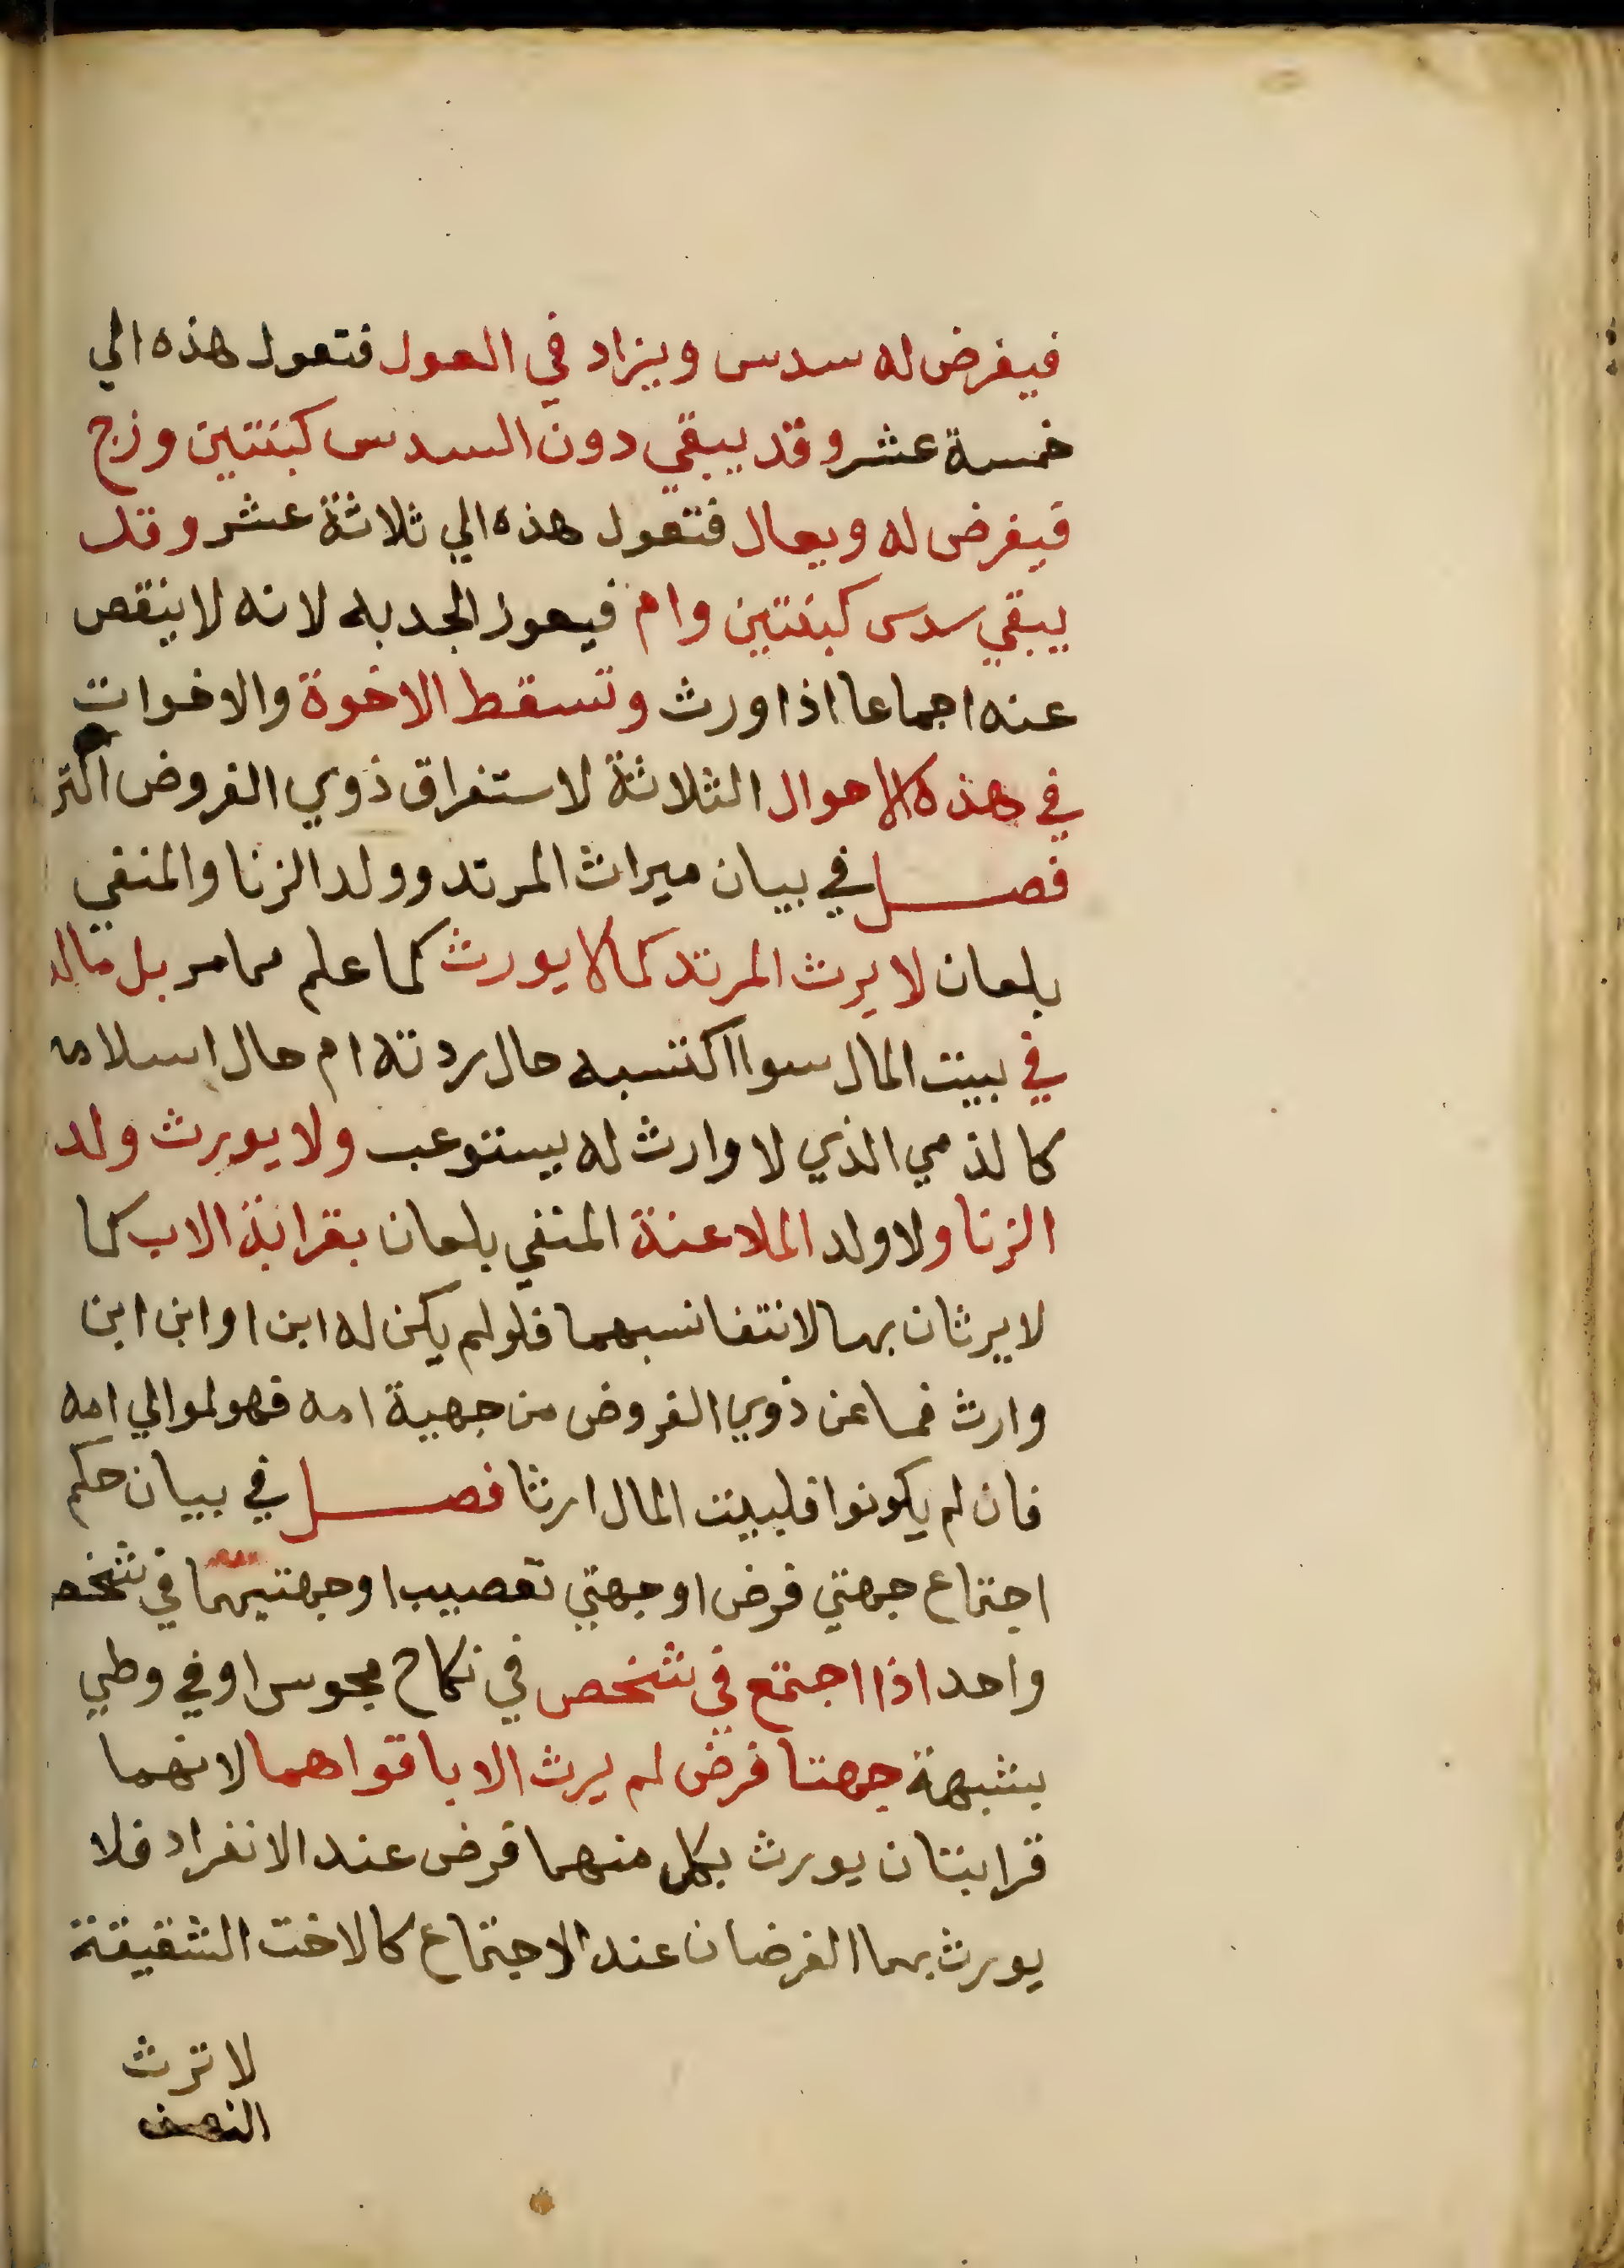 فيفرض له سدس ويزاد في العول فتعول هذه الي
خمسة عشر وقد يبقي دون السدس كبنتين وزج
فيفرض له ويعال فتعول هذه الي ثلاثة عشر وقد
يبقي سدس كبنتين وام فيعوز الجد به لانه لا ينقص
عنه اجماعا اذا ورث وتسقط الاخوة والاخوات
في هذه الاحوال الثلاثة لاستغراق ذوي الفروض التر
فصل في بيان ميراث المرتد وولد الزنا والمنفي
بلعان لا يرث المرتد كما لا يورث كما علم مما مر بل ماله
في بيت المال سوا اكتسبه حال ردته ام حال اسلامه
كالذمي الذي لا وارث له يستوعب ولا يورث ولد
الزنا ولا ولد الملاعنة المنفي بلعان بقرابة الاب كما
لا يرثان بها لانتفا نسبهما فلو لم يكن له ابن او ابن ابن
وارث فما عن ذوي الفروض من جهة امه فهو لموالي امه
فان لم يكونوا فلبيت المال ارثا فصل في بيان حكم
اجتماع جهتي فرض او جهتي تعصيب او جهتيهما في شخص
واحد اذا اجتمع في شخص في نكاح مجوس او في وطي
بشبهة جهتا فرض لم يرث الا باقواهما لانهما
قرابتان يورث بكل منهما فرض عند الانفراد فلا
يورث بهما الفرضان عند الاجتماع كالاخت الشقيقة
لا ترث
النصف